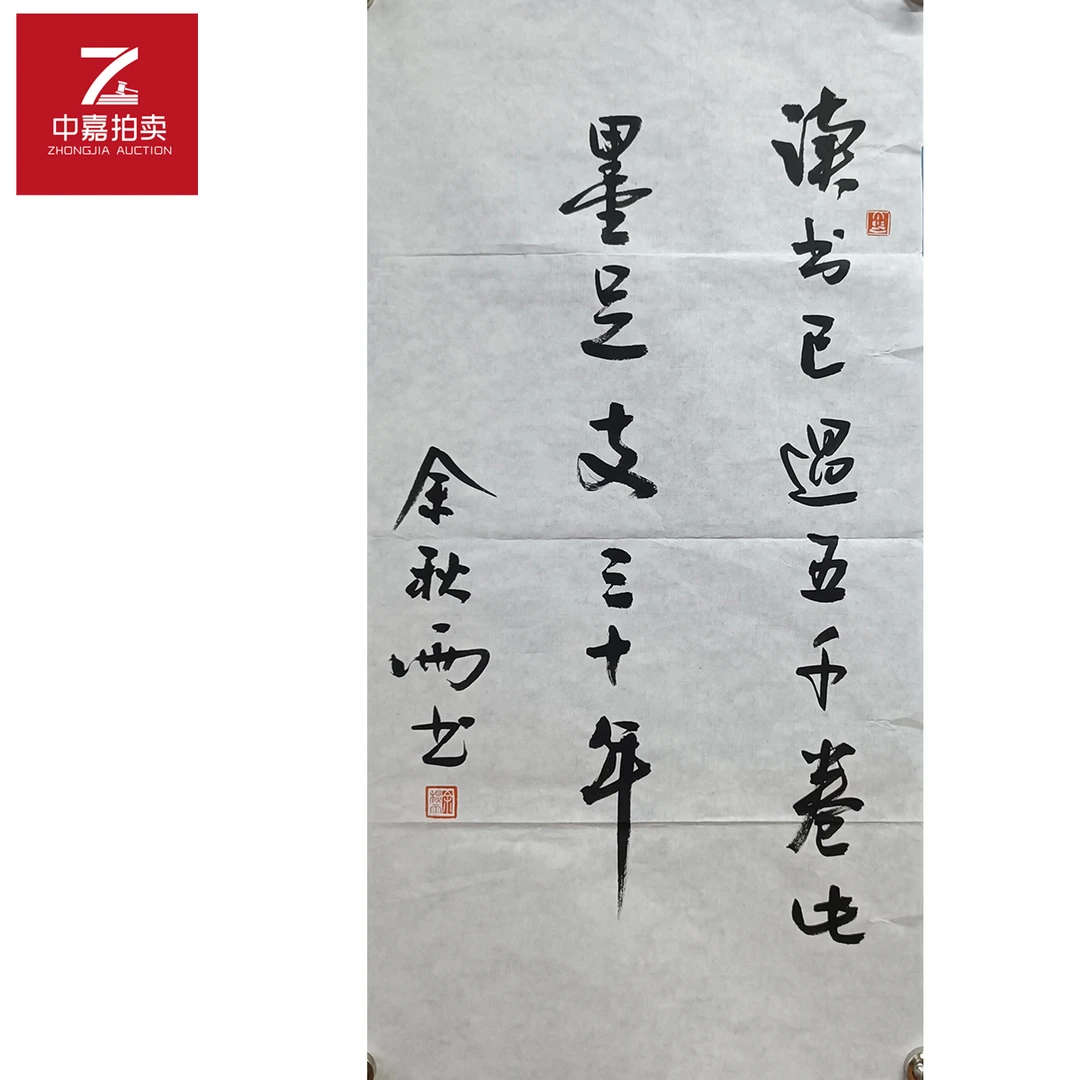 中嘉拍卖
ZHONGJIA AUCTION
读书已過五千卷此
墨足支三十年
余秋雨书